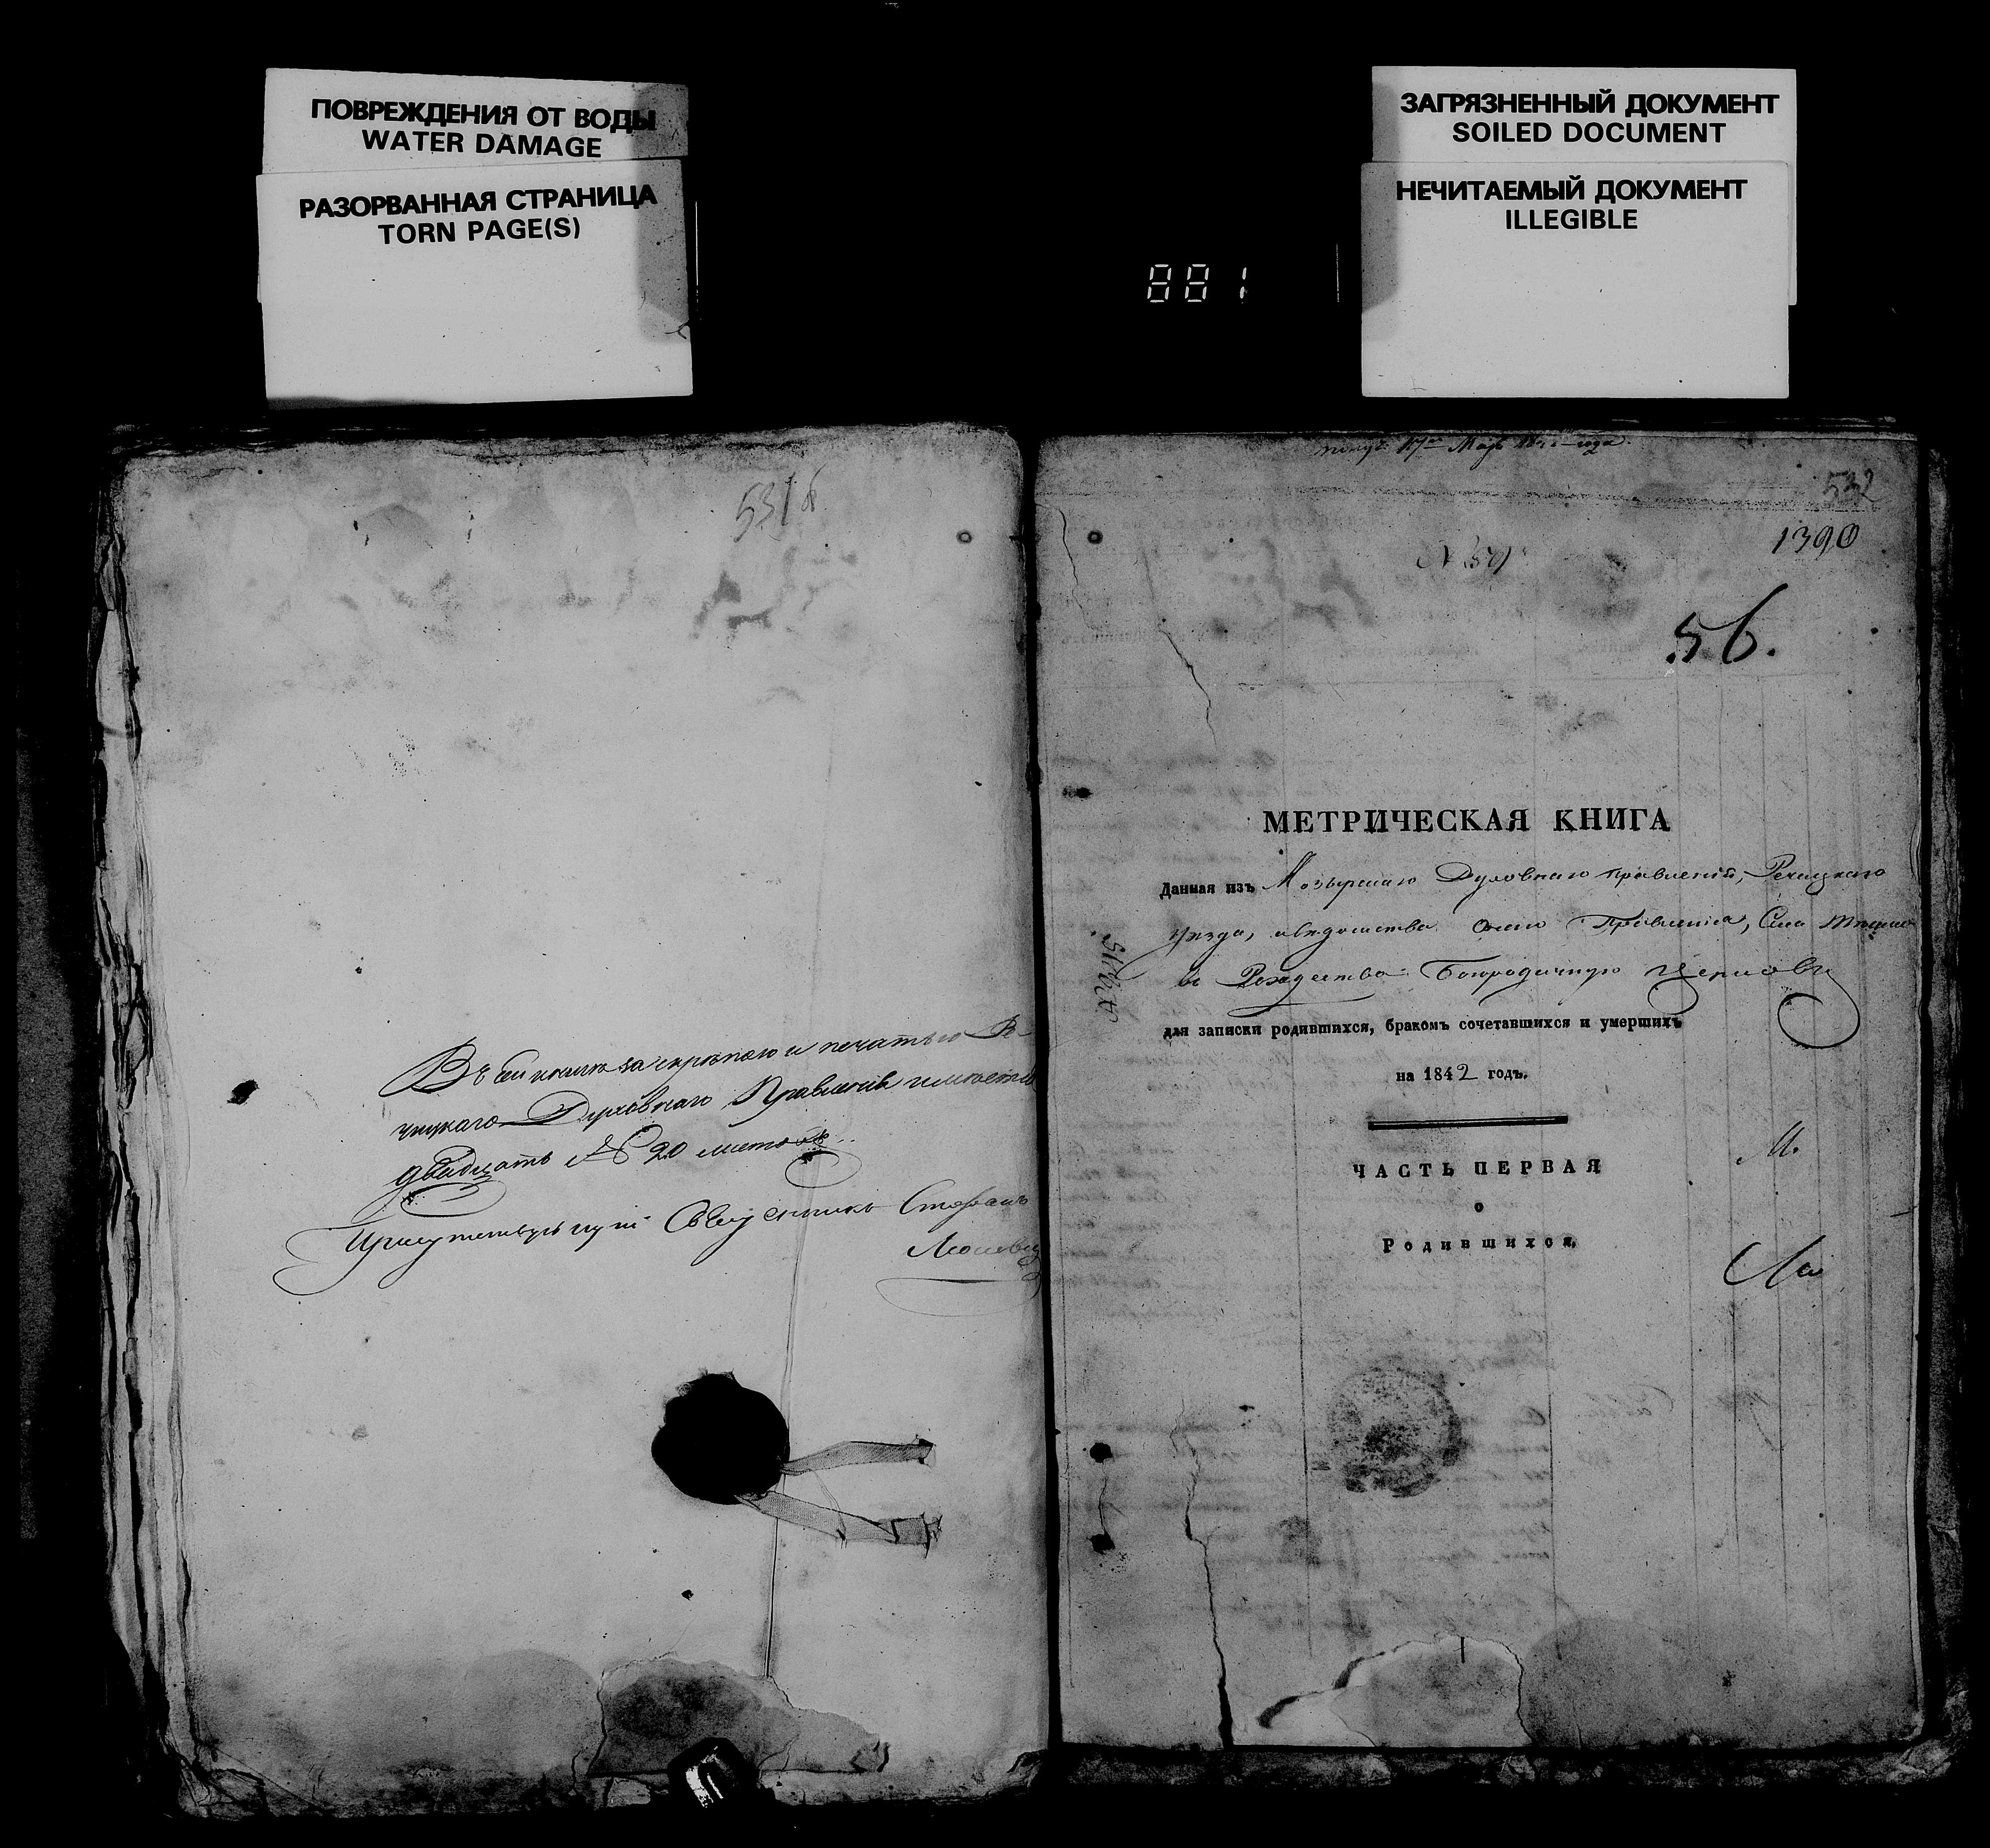 ПОВРЕЖДЕНИЯ ОТ ВОДЫ
WATER DAMAGE
РАЗОРВАННАЯ СТРАНИЦА
TORN PAGE(S)
ЗАГРЯЗНЕННЫЙ ДОКУМЕНТ
SOILED DOCUMENT
НЕЧИТАЕМЫЙ ДОКУМЕНТ
ILLEGIBLE
881
531
Въ сей книгѣ за скрѣпою и печатью Ре-
чицкаго Духовнаго Правленія имѣется
двадцать № 20 листовъ.
Присутствующій Священникъ Стефанъ
532
1390
56.
МЕТРИЧЕСКАЯ КНИГА
Данная изъ Мозырскаго Духовнаго правленія, Речицкаго
уѣзда, вѣдомства онаго Правленія, Села
въ Рождество Богородичную церковь
для записки родившихся, бракомъ сочетавшихся и умершихъ
на 1842 годъ.
ЧАСТЬ ПЕРВАЯ
о
Родившихся.